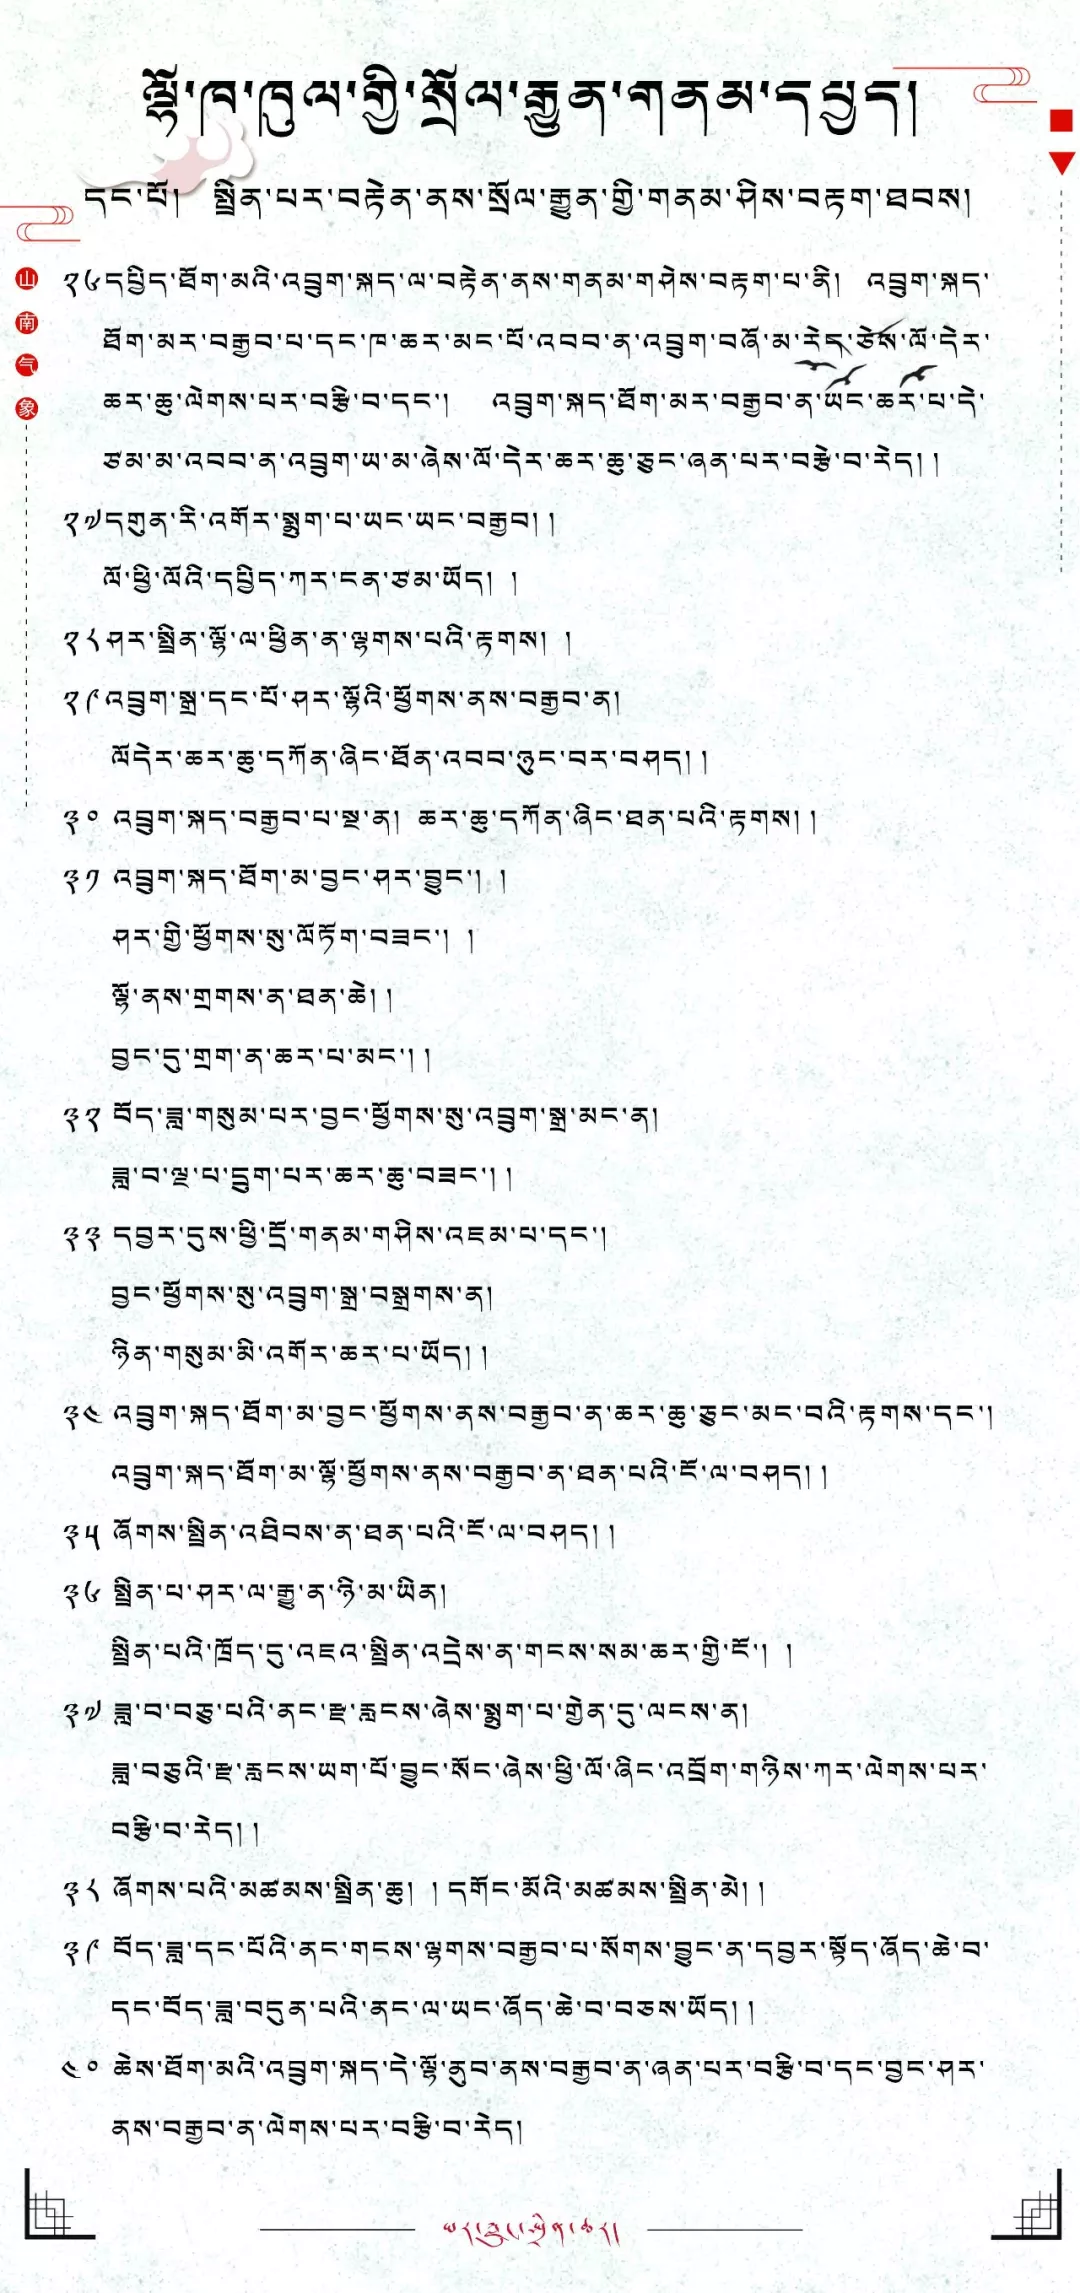 ལྷོ་ཁ་ཁུལ་གྱི་སྲོལ་རྒྱུན་གནམ་དཔྱད།
དང་པོ། སྤྲིན་པར་བརྟེན་ནས་སྲོལ་རྒྱུན་གྱི་གནམ་ཤིས་བརྟག་ཐབས།
山
南
气
象
༢༦དཔྱིད་ཐོག་མའི་འབྲུག་སྐད་ལ་བརྟེན་ནས་གནམ་གཤེས་བརྟག་པ་ནི། འབྲུག་སྐད་
ཐོག་མར་བརྒྱབ་པ་དང་ཁ་ཆར་མང་པོ་འབབ་ན་འབྲུག་བཞོ་མ་རེད་ཅེས་ལོ་དེར་
ཆར་ཆུ་ལེགས་པར་བརྩི་བ་དང་། འབྲུག་སྐད་ཐོག་མར་བརྒྱབ་ན་ཡང་ཆར་པ་དེ་
ཙམ་མ་འབབ་ན་འབྲུག་ཡ་མ་ཞེས་ལོ་དེར་ཆར་ཆུ་ཅུང་ཞན་པར་བརྩེ་བ་རེད།།
༢༧དགུན་རི་འགོར་སྨུག་པ་ཡང་ཡང་བརྒྱབ།།
ལོ་ཕྱི་ལོའི་དཔྱིད་ཀར་ངན་ཙམ་ཡོད། །
༢༨ཤར་སྤྲིན་ལྷོ་ལ་ཕྱིན་ན་ལྷགས་པའི་རྟགས། །
༢༩འབྲུག་སྒྲ་དང་པོ་ཤར་ལྷོའི་ཕྱོགས་ནས་བརྒྱབ་ན།
ལོདེར་ཆར་ཆུ་དཀོན་ཞིང་ཐོན་འབབ་ཉུང་བར་བཤད།།
༣༠ འབྲུག་སྐད་བརྒྱབ་པ་སྔ་ན། ཆར་ཆུ་དཀོན་ཞིང་ཐན་པའི་རྟགས།།
༣༡ འབྲུག་སྐད་ཐོག་མ་བྱང་ཤར་བྱུང་། །
ཤར་གྱི་ཕྱོགས་སུ་ལོཏོག་བཟང་། །
ལྷོ་ནས་གྲགས་ན་ཐན་ཆེ།།
བྱང་དུ་གྲག་ན་ཆར་པ་མང་།།
༣༢ བོད་ཟླ་གསུམ་པར་བྱང་ཕྱོགས་སུ་འབྲུག་སྒྲ་མང་ན།
ཟླ་བ་ལྔ་པ་དྲུག་པར་ཆར་ཆུ་བཟང་།།
༣༣ དབྱར་དུས་ཕྱི་དྲོ་གནམ་གཤིས་འཇམ་པ་དང་།
བྱང་ཕྱོགས་སུ་འབྲུག་སྒྲ་བསྒྲགས་ན།
ཉིན་གསུམ་མི་འགོར་ཆར་པ་ཡོད།།
༣༤ འབྲུག་སྐད་ཐོག་མ་བྱང་ཕྱོགས་ནས་བརྒྱབ་ན་ཆར་ཆུ་ཅུང་མང་བའི་རྟགས་དང་།
འབྲུག་སྐད་ཐོག་མ་ལྷོ་ཕྱོགས་ནས་བརྒྱབ་ན་ཐན་པའི་ངོ་ལ་བཤད།།
༣༥ ཞོགས་སྤྲིན་འཐིབས་ན་ཐན་པའི་ངོ་ལ་བཤད།།
༣༦ སྤྲིན་པ་ཤར་ལ་རྒྱུ་ན་ཉི་མ་ཡིན།
སྤྲིན་པའི་ཁྲོད་དུ་འཇའ་སྤྲིན་འདྲེས་ན་གངས་སམ་ཆར་གྱི་ངོ་། །
༣༧ ཟླ་བ་བཅུ་པའི་ནང་རྫ་རླངས་ཞེས་སྨུག་པ་གྱེན་དུ་ལངས་ན།
ཟླ་བཅུའི་རྫ་རླངས་ཡག་པོ་བྱུང་སོང་ཞེས་ཕྱི་ལོ་ཞིང་འབྲོག་གཉིས་ཀར་ལེགས་པར་
བརྩི་བ་རེད།།
༣༨ ཞོགས་པའི་མཚམས་སྤྲིན་ཆུ། །དགོང་མོའི་མཚམས་སྤྲིན་མེ།།
༣༩ བོད་ཟླ་དང་པོའི་ནང་གངས་ལྷགས་བརྒྱབ་པ་སོགས་བྱུང་ན་དབྱར་སྟོད་ཞོད་ཆེ་བ་
དང་བོད་ཟླ་བདུན་པའི་ནང་ལ་ཡང་ཞོད་ཆེ་བ་བཅས་ཡོད།།
༤༠ ཆེས་ཐོག་མའི་འབྲུག་སྐད་དེ་ལྷོ་ནུབ་ནས་བརྒྱབ་ན་ཞན་པར་བརྩི་བ་དང་བྱང་ཤར་
ནས་བརྒྱབ་ན་ལེགས་པར་བརྩི་བ་རེད།